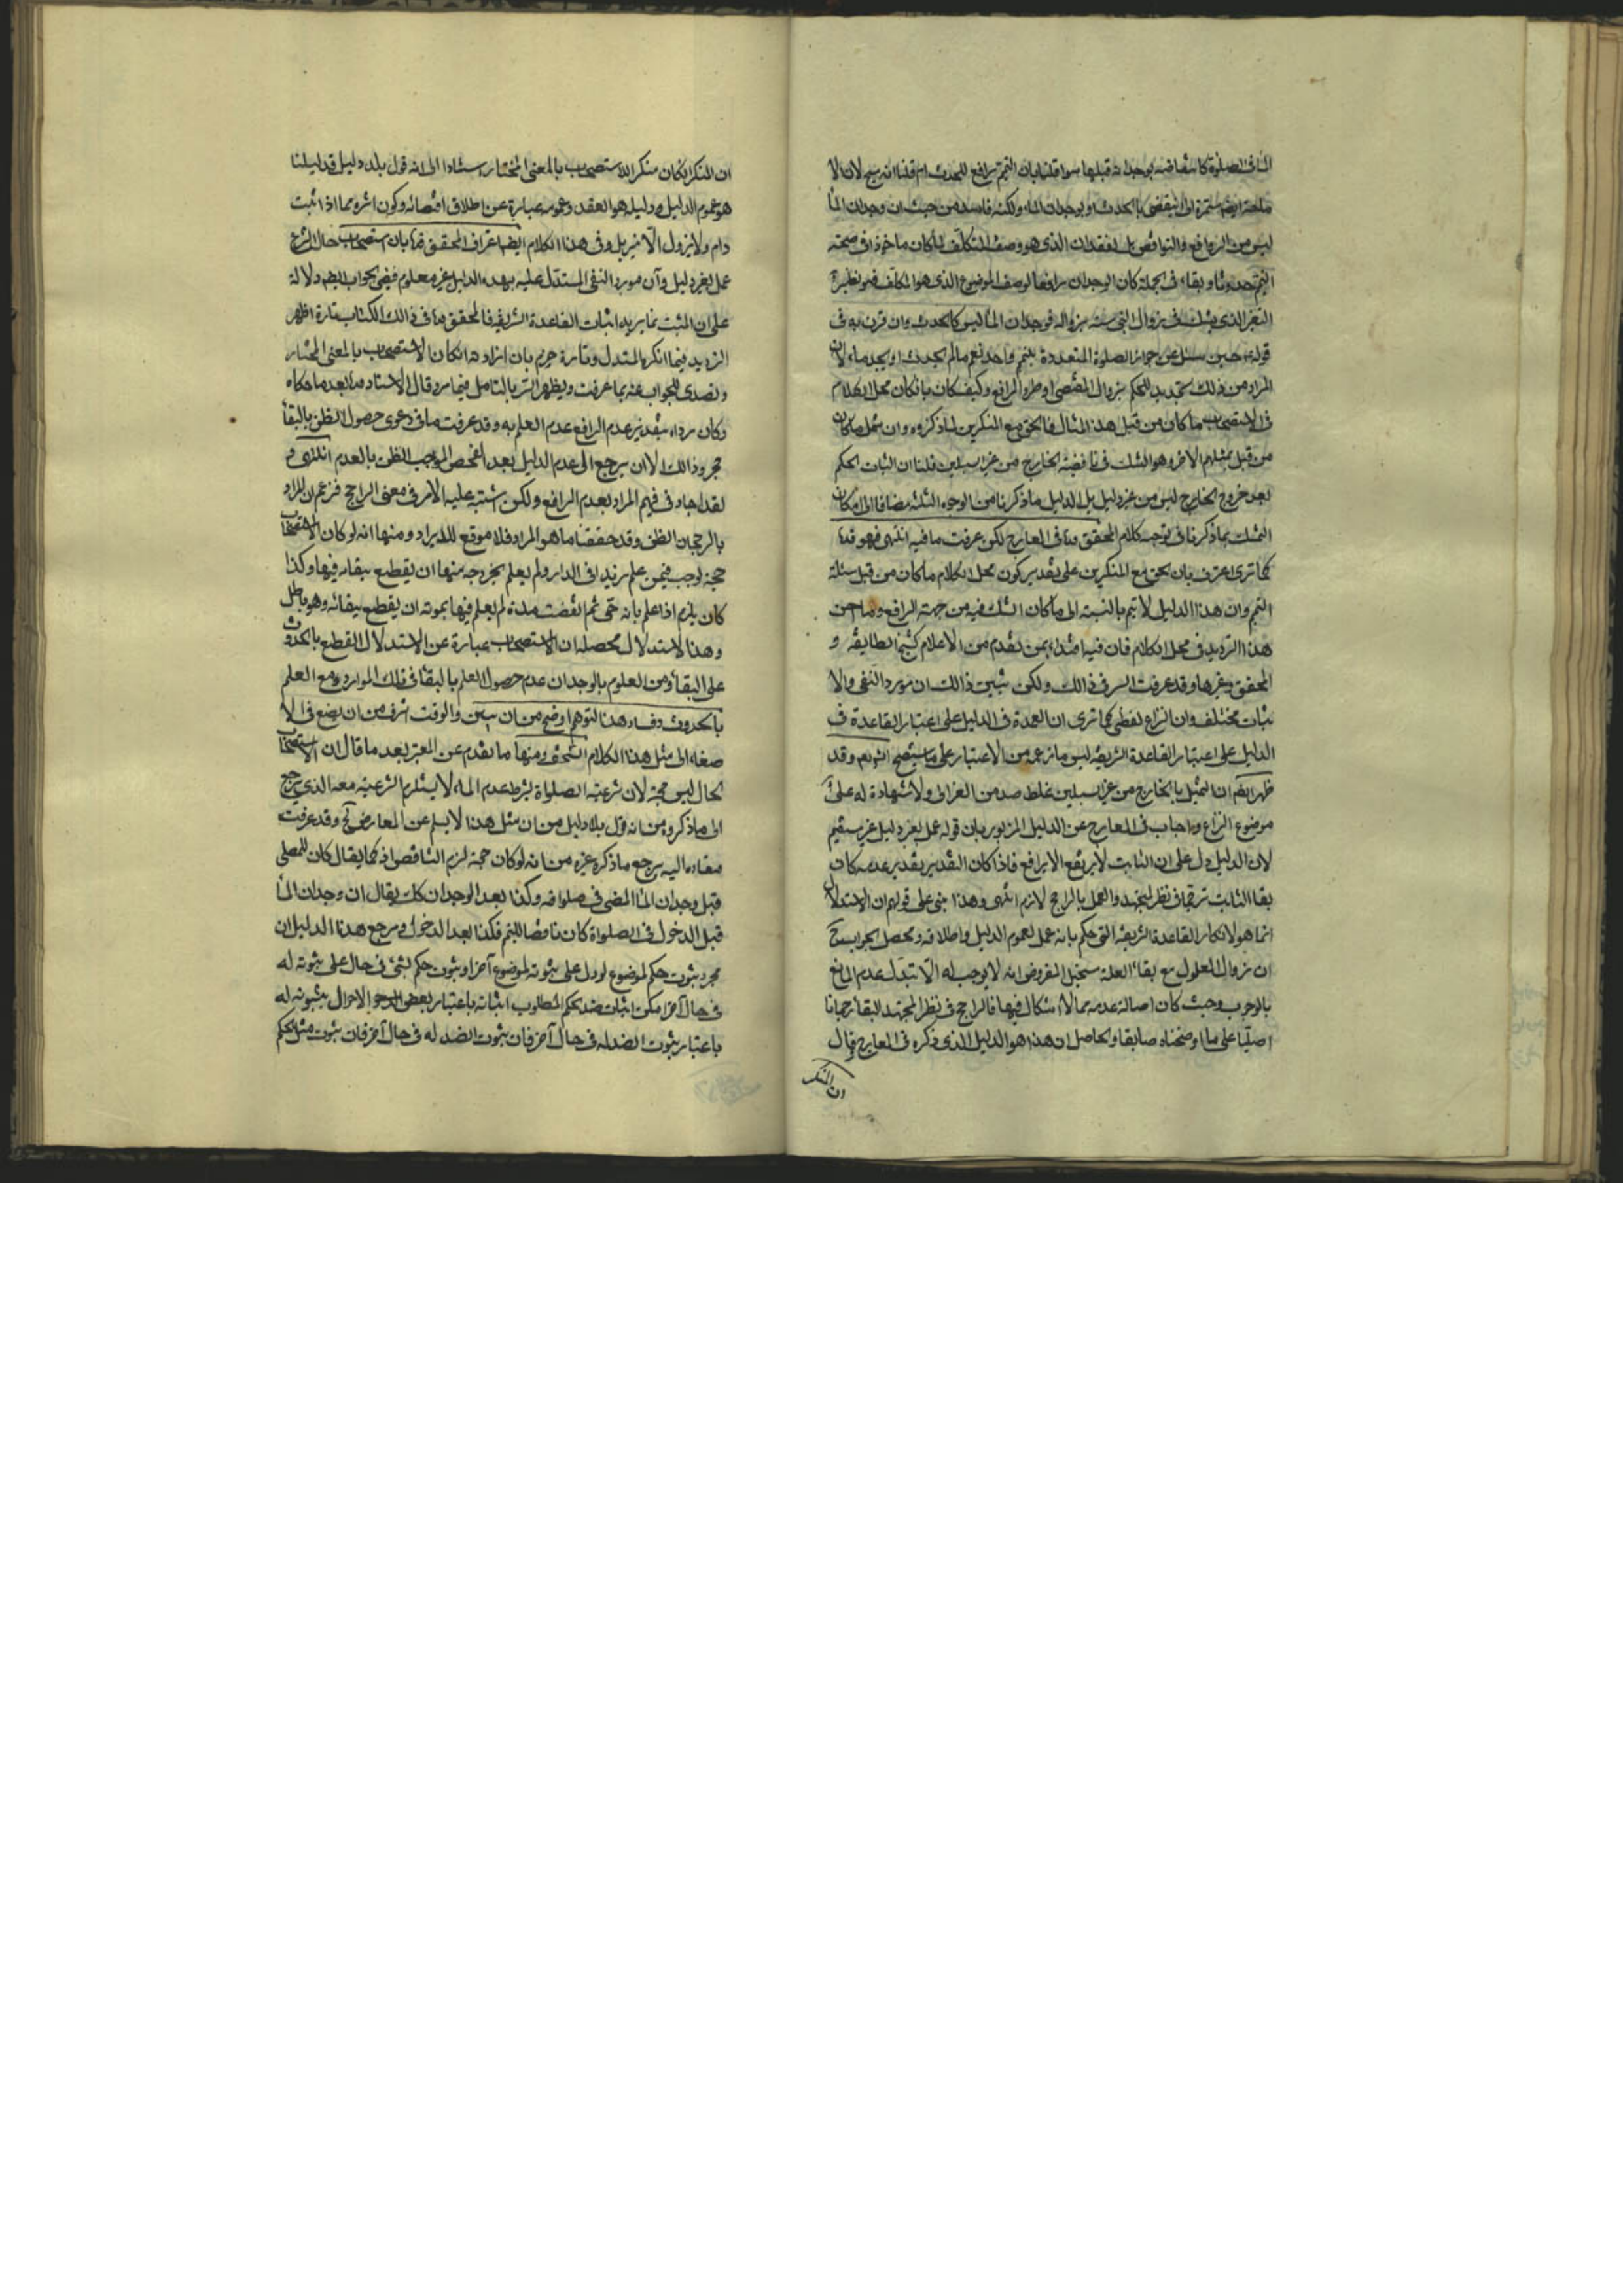 الماء فى الصلوة كانتقاضه بوجدانه قبلها سواء قلنا بان التيمم رافع للحدث ام قلنا انه مبيح لان الا
باحة ايضا مستمرة الى ان ينقضى بالحدث او بوجدان الماء ولكنه فاسد من حيث ان وجدان الماء
ليس من الروافع والنواقض بل الفقدان الذى هو وصف المتكلف لما كان ماخوذا فى صحة
التيمم حدوثا وبقاء فى الجملة كان الوجدان رافعا لوصف الموضوع الذى هو المكلف فهو نظير
التغير الذى يشك فى زوال النجاسة بزواله فوجدان الماء ليس كالحدث وان قرن به فى
قوله حين سئل عن جواز الصلوة المتعددة بتيمم واحد نعم ما لم يحدث او يجد ماء لان
المراد من ذلك تحديد الحكم بزوال المقتضى او طرو الرافع وكيف كان فان كان محل الكلام
فى الاستصحاب ما كان من قبيل هذا المثال فالحق مع المنكرين لما ذكروه وان شمل ما كان
من قبيل تمثيلهم الاخر وهو الشك فى ناقضية الخارج من غير السبيلين قلنا ان اثبات الحكم
بعد خروج الخارج ليس من غير دليل بل الدليل ما ذكرنا من الوجوه الثلثة مضافا الى امكان
التمسك بما ذكرنا فى توجيه كلام المحقق فى المعارج لكن عرفت ما فيه انتهى فهو
كما ترى اعترف بان الحق مع المنكرين على تقدير كون محل الكلام ما كان من قبيل مسئلة
التيمم وان هذا الدليل لا يتم بالنسبة الى ما كان الشك فيه من جهة الرافع وما احسن
هذا الترديد فى محل الكلام فان فيه اقتداء بمن تقدم من الاعلام كشيخ الطايفة و
المحقق وغيرها وقد عرفت السر فى ذالك ولكن تبين ذالك ان مورد النفى والا
ثبات مختلف وان النزاع لفظى كما ترى ان العمدة فى الدليل على اعتبار القاعدة ف
الدليل على اعتبار القاعدة الشريفة ليس ما زعمه من الاعتبار على ما ستصح انش تعم وقد
ظهر ايضم ان التمثيل بالخارج من غير السبيلين غلط صدر من الغزالى ولا شهادة له على
موضوع النزاع واجاب فى المعارج عن الدليل المزبور بان قوله عمل بغير دليل غير مستقيم
لان الدليل دل على ان الثابت لا يرتفع الا برافع فاذا كان التقدير تقدير عدمه كان
بقاء الثابت ترجحا فى نظر المجتهد والعمل بالراجح لازم انتهى وهذا مبنى على قولهم ان الاستدلال
انما هو لانكار القاعدة الشريفة التى حكم بانه عمل لعموم الدليل واطلاقه ومحصل الجواب ح
ان زوال المعلول مع بقاء العلة مستحيل المفروض انه لا يوجب له الا تبدل عدم المانع
بالوجود وحيث كان اصالة عدمه مما لا اشكال فيها فالراجح فى نظر المجتهد البقاء رجحانا
اصليا على ما اوضحناه سابقا والحاصل ان هذا هو الدليل الذى ذكره فى المعارج قال
ان المنكر
ان المنكر ان كان منكرا للاستصحاب بالمعنى المختار استنادا الى انه قول بلا دليل فدليلنا
هو عموم الدليل ودليله هو العقد وعمومه عبارة عن اطلاق اقتضائه وكون اثره مما اذا ثبت
دام ولا يزول الا بمزيل وفى هذا الكلام ايضا اعتراف المحقق بان استصحاب حال الشرع
عمل بغير دليل وان مورد النفى المستدل عليه بهذه الدليل غير معلوم ففى الجواب ايضم دلالة
على ان المثبت انما يريد اثبات القاعدة الشريفة فالمحقق فى ذالك الكتاب تارة اظهر
الترديد فيما انكره المستدل وتارة جزم بان ارادة انكار الاستصحاب بالمعنى المختار
وتصدى للجواب عنه بما عرفت ويظهر السر بالتامل فيما مر وقال الاستاد بعد ما حكاه
وكان مراده بتقدير عدم الرافع عدم العلم به وقد عرفت ما فى دعوى حصول الظن بالبقاء
بمجرد ذالك الا ان يرجع الى عدم الدليل بعد الفحص الموجب الظن بالعدم انتهى و
لقد اجاد فى فهم المراد بعدم الرافع ولكن اشتبه عليه الامر فى معنى الراجح فزعم ان المراد
بالرجحان الظن وقد حققنا ما هو المراد فلا موقع للايراد ومنها انه لو كان الاستصحاب
حجة لوجب فيمن علم زيدا فى الدار ولم يعلم بخروجه منها ان يقطع ببقائه فيها وكذا
كان يلزم اذا علم بانه حى ثم انقضت مدة لم يعلم فيها بموته ان يقطع ببقائه وهو باطل
وهذا الاستدلال محصله ان الاستصحاب عبارة عن الاستدلال القطع بالحدوث
على البقاء ومن المعلوم بالوجدان عدم حصول العلم بالبقاء فى تلك الموارد مع العلم
بالحدوث وفساد هذا التوهم اوضح من ان يبين والوقت اشرف من ان يضيع فى الا
صغاء الى مثل هذا الكلام السخيف ومنها ما تقدم عن المعتبر بعد ما قال ان الاستصحاب
الحال ليس حجة لان شرعية الصلواة بشرط عدم الماء لا يستلزم الشرعية معه الذى يرجع
الى ما ذكروه من انه قول بلا دليل من ان مثل هذا لا يسلم عن المعارض ح وقد عرفت
مفاده اليه يرجع ما ذكره غيره من انه لو كان حجة لزم التناقض اذ كما يقال كان للمصلى
قبل وجدان الماء المضى فى صلواته وكذا بعد الوجدان كك يقال ان وجدان الماء
قبل الدخول فى الصلواة كان ناقضا للتيمم فكذا بعد الدخول ومرجع هذا الدليل ان
مجرد ثبوت حكم لموضوع لو دل على ثبوته لموضوع آخر او ثبوت حكم لشئ فى حال على ثبوته له
فى حال آخر امكن اثبات ضد الحكم المطلوب اثباته باعتبار بعض الاحوال بثبوته له
باعتبار ثبوت الضد له فى حال آخر فان ثبوت الضد له فى حال آخر فان ثبوت مثل الحكم